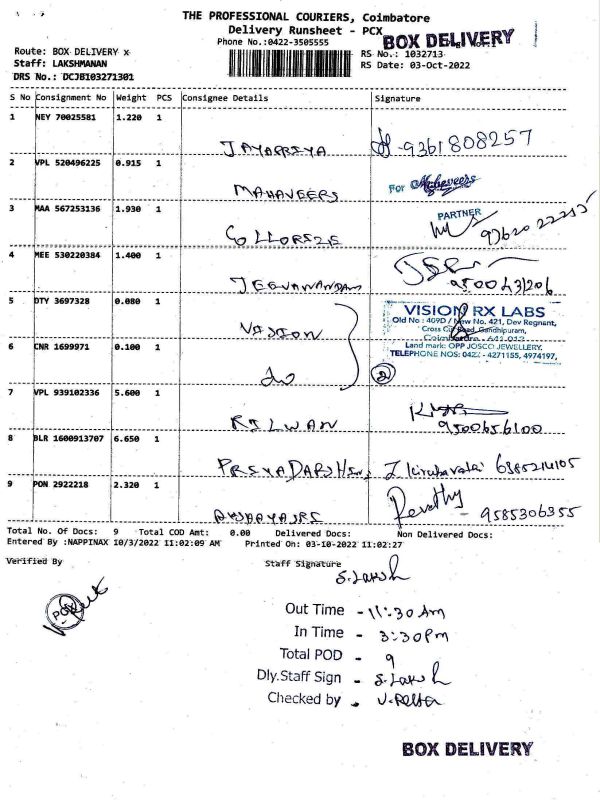 THE PROFESSIONAL COURIERS, Coimbatore
Delivery Runsheet - PCX
Phone No.:0422-3505555
BOX DELIVERY
Route: BOX DELIVERY x
RS No.: 1032713
Staff: LAKSHMANAN
RS Date: 03-Oct-2022
DRS No.: DCJB103271301
S No Consignment No Weight PCS Consignee Details Signature
1 NEY 70025581 1.220 1
JAYAPRIYA 9361808257
2 VPL 520496225 0.915 1
MAHAVEERS For Mahaveers
PARTNER
3 MAA 567253136 1.930 1
4 MEE 530220384 1.400 1
JEEVANANDAM
5 DTY 3697328 0.080 1
VISION
VISION RX LABS
Old No : 409D / New No. 421, Dev Regnant,
Cross Cut Road, Gandhipuram,
Coimbatore - 641 012
Land mark: OPP JOSCO JEWELLERY.
TELEPHONE NOS: 0422 - 4271155, 4974197,
6 CNR 1699971 0.100 1
2
7 VPL 939102336 5.600 1
RILWAN 9500656100
8 BLR 1600913707 6.650 1
PRIYADARSHINI
9 PON 2922218 2.320 1
Revathy - 9585306355
Total No. Of Docs: 9 Total COD Amt: 0.00 Delivered Docs: Non Delivered Docs:
Entered By :NAPPINAX 10/3/2022 11:02:09 AM Printed On: 03-10-2022 11:02:27
Verified By Staff Signature
S. Laksh
PCX
Out Time - 11:30 Am
In Time - 3:30 Pm
Total POD - 9
Dly.Staff Sign - S. Laksh
Checked by -
BOX DELIVERY